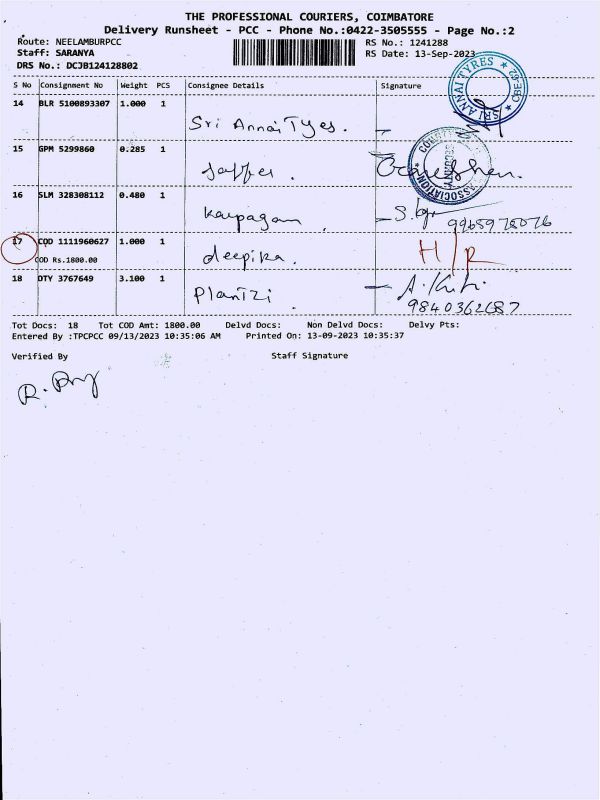 THE PROFESSIONAL COURIERS, COIMBATORE
Delivery Runsheet - PCC - Phone No.:0422-3505555 - Page No.:2
Route: NEELAMBURPCC RS No.: 1241288
Staff: SARANYA RS Date: 13-Sep-2023
DRS No.: DCJB124128802
S No Consignment No Weight PCS Consignee Details Signature
SRI ANNAI TYRES ★ CBE-62 ★
14 BLR 5100893307 1.000 1
Sri Annai Tyes. -
15 GPM 5299860 0.285 1
ASSOCIATION
16 SLM 328308112 0.480 1
Karpagam -
9965978076
17 COD 1111960627 1.000 1 H/R
COD Rs.1800.00 deepika.
18 DTY 3767649 3.100 1
Plantzi -
9840362687
Tot Docs: 18 Tot COD Amt: 1800.00 Delvd Docs: Non Delvd Docs: Delvy Pts:
Entered By :TPCPCC 09/13/2023 10:35:06 AM Printed On: 13-09-2023 10:35:37
Verified By Staff Signature